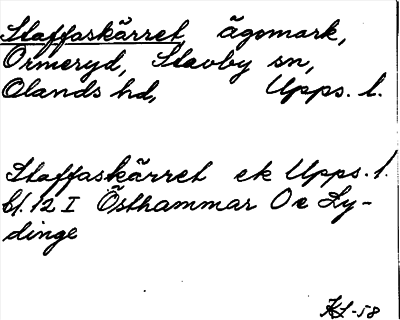 Staffaskärret, ägomark,
Ormeryd, Stavby sn,
Olands hd, Upps. l.
Staffaskärret ek Upps. l.
bl. 12 I Östhammar O e Ly-
dinge
KL-58